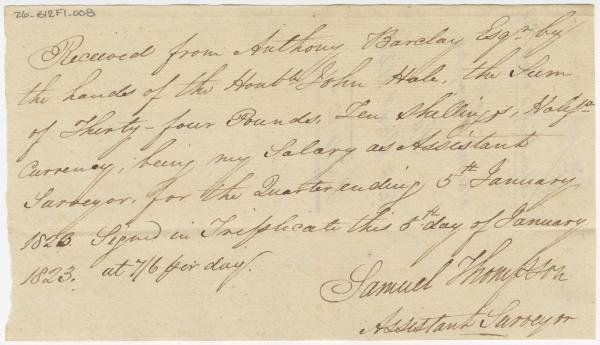 26-812F1-008
Received from Anthony Barclay Esqr. by
the hands of the Honble John Hale, the Sum
of Thirty-four Pounds, Ten Shillings, Halifa
Currency, being my Salary as Assistant
Surveyor, for the Quarter ending 5th January
1823 Signed in Triplicate this 5th day of January
1823. at 7/6 per day.
Samuel Thompson
Assistant Surveyor